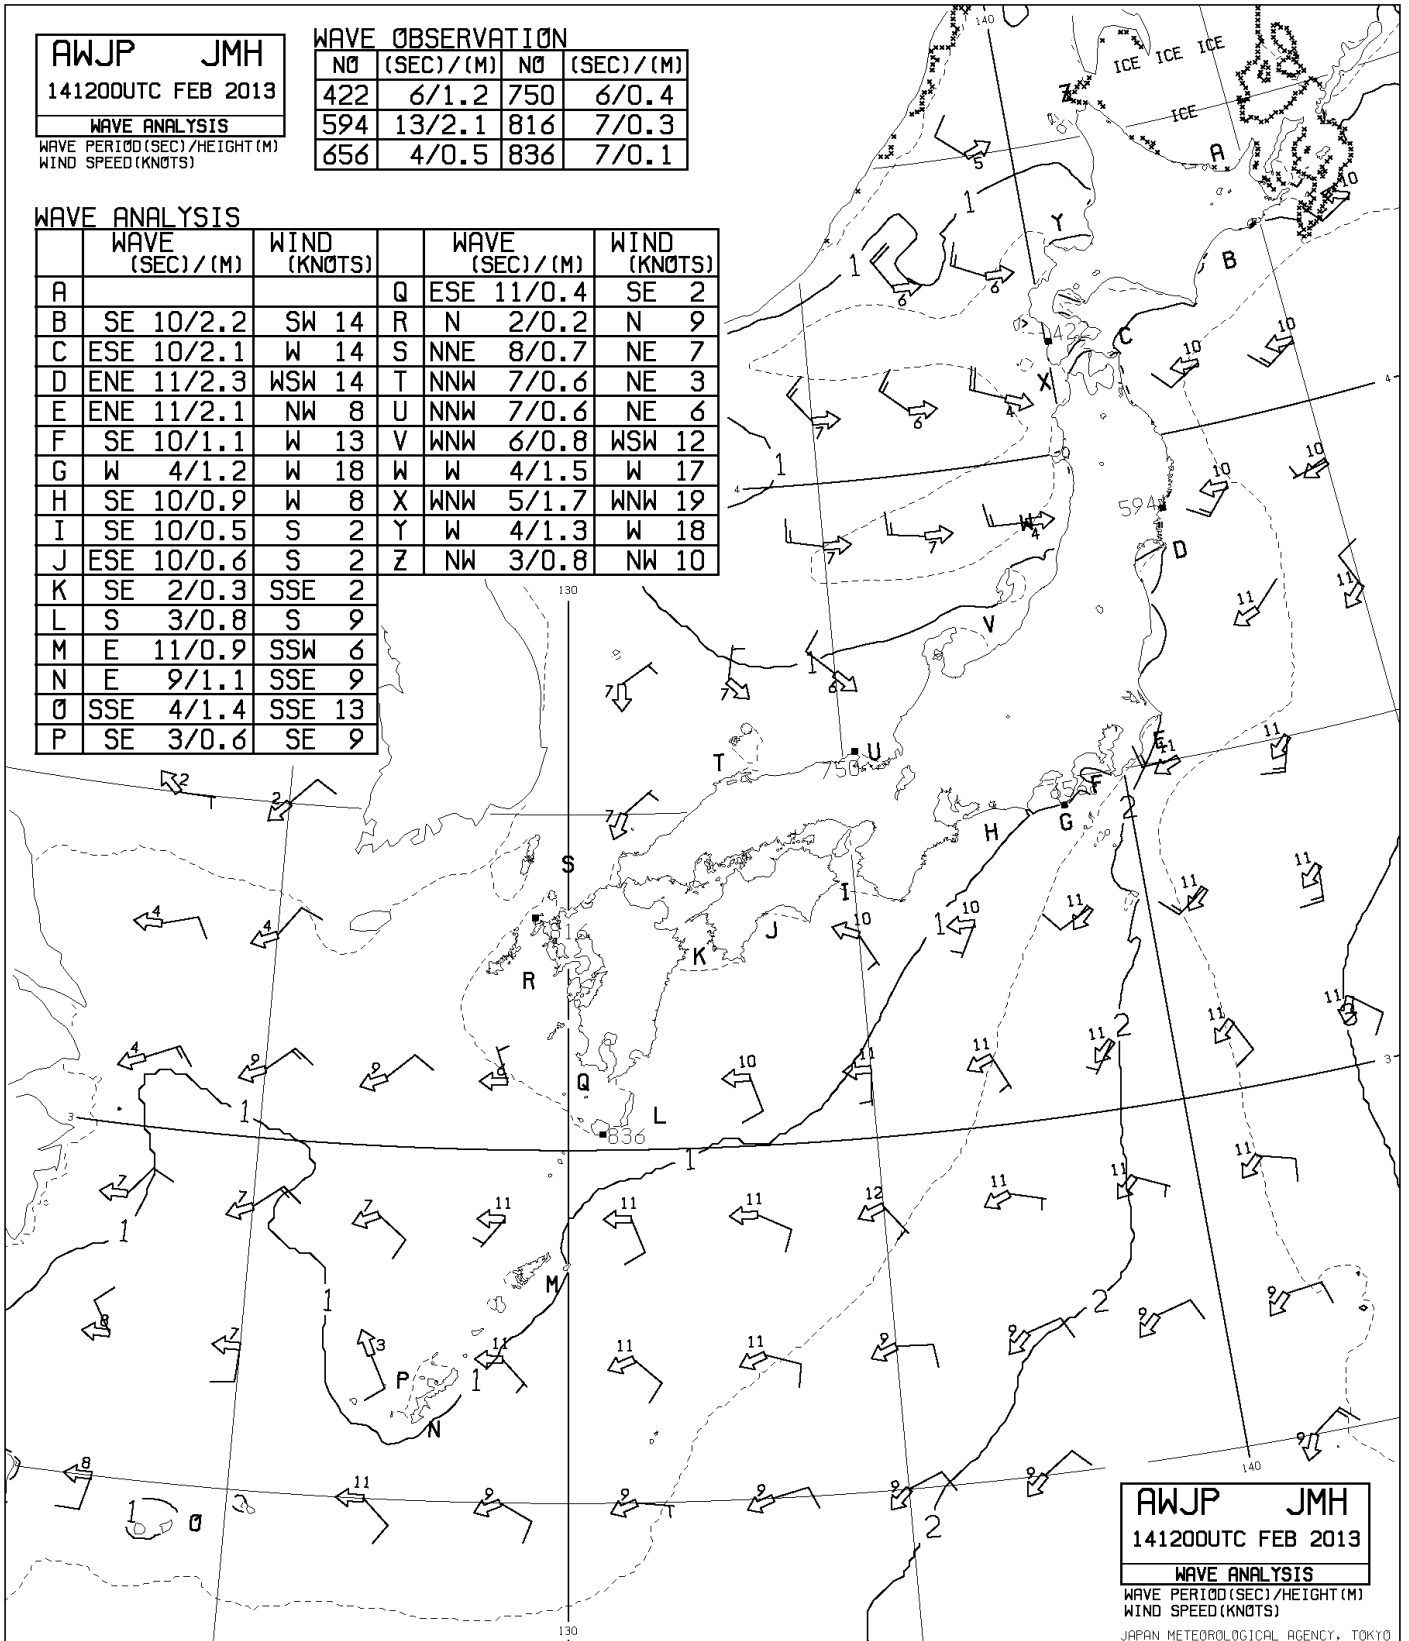 AWJP JMH
141200UTC FEB 2013
WAVE ANALYSIS
WAVE PERIOD(SEC)/HEIGHT(M)
WIND SPEED(KNOTS)
WAVE OBSERVATION
NO (SEC)/(M) NO (SEC)/(M)
422 6/1.2 750 6/0.4
594 13/2.1 816 7/0.3
656 4/0.5 836 7/0.1
WAVE ANALYSIS
WAVE (SEC)/(M) WIND (KNOTS) WAVE (SEC)/(M) WIND (KNOTS)
A Q ESE 11/0.4 SE 2
B SE 10/2.2 SW 14 R N 2/0.2 N 9
C ESE 10/2.1 W 14 S NNE 8/0.7 NE 7
D ENE 11/2.3 WSW 14 T NNW 7/0.6 NE 3
E ENE 11/2.1 NW 8 U NNW 7/0.6 NE 6
F SE 10/1.1 W 13 V WNW 6/0.8 WSW 12
G W 4/1.2 W 18 W W 4/1.5 W 17
H SE 10/0.9 W 8 X WNW 5/1.7 WNW 19
I SE 10/0.5 S 2 Y W 4/1.3 W 18
J ESE 10/0.6 S 2 Z NW 3/0.8 NW 10
K SE 2/0.3 SSE 2
L S 3/0.8 S 9
M E 11/0.9 SSW 6
N E 9/1.1 SSE 9
O SSE 4/1.4 SSE 13
P SE 3/0.6 SE 9
140
ICE ICE ICE
ICE
Z
A
5
10
1
Y
B
1
6 6
C
10 10
X
4
7 6 4
1
4
10 10
594
W
7 7 4
D
11 11
130
V
1
7 7 6
T
U
750
E
11 11
2 2
7
F
G
H
2
S
I
11 11 11
4 4
J
10 1 10
K
R
11 11
2
4 9 9 9
Q
10 11 11 11
3
3
1
L
836
1
7 7 7 11 11 11 12 11 11 11
1
M
1
2
9 9 9
8 7 3 11 11 11 9
P
1
N
140
9
8 11 9 9 9 9 9
1
O
2
130
AWJP JMH
141200UTC FEB 2013
WAVE ANALYSIS
WAVE PERIOD(SEC)/HEIGHT(M)
WIND SPEED(KNOTS)
JAPAN METEOROLOGICAL AGENCY, TOKYO